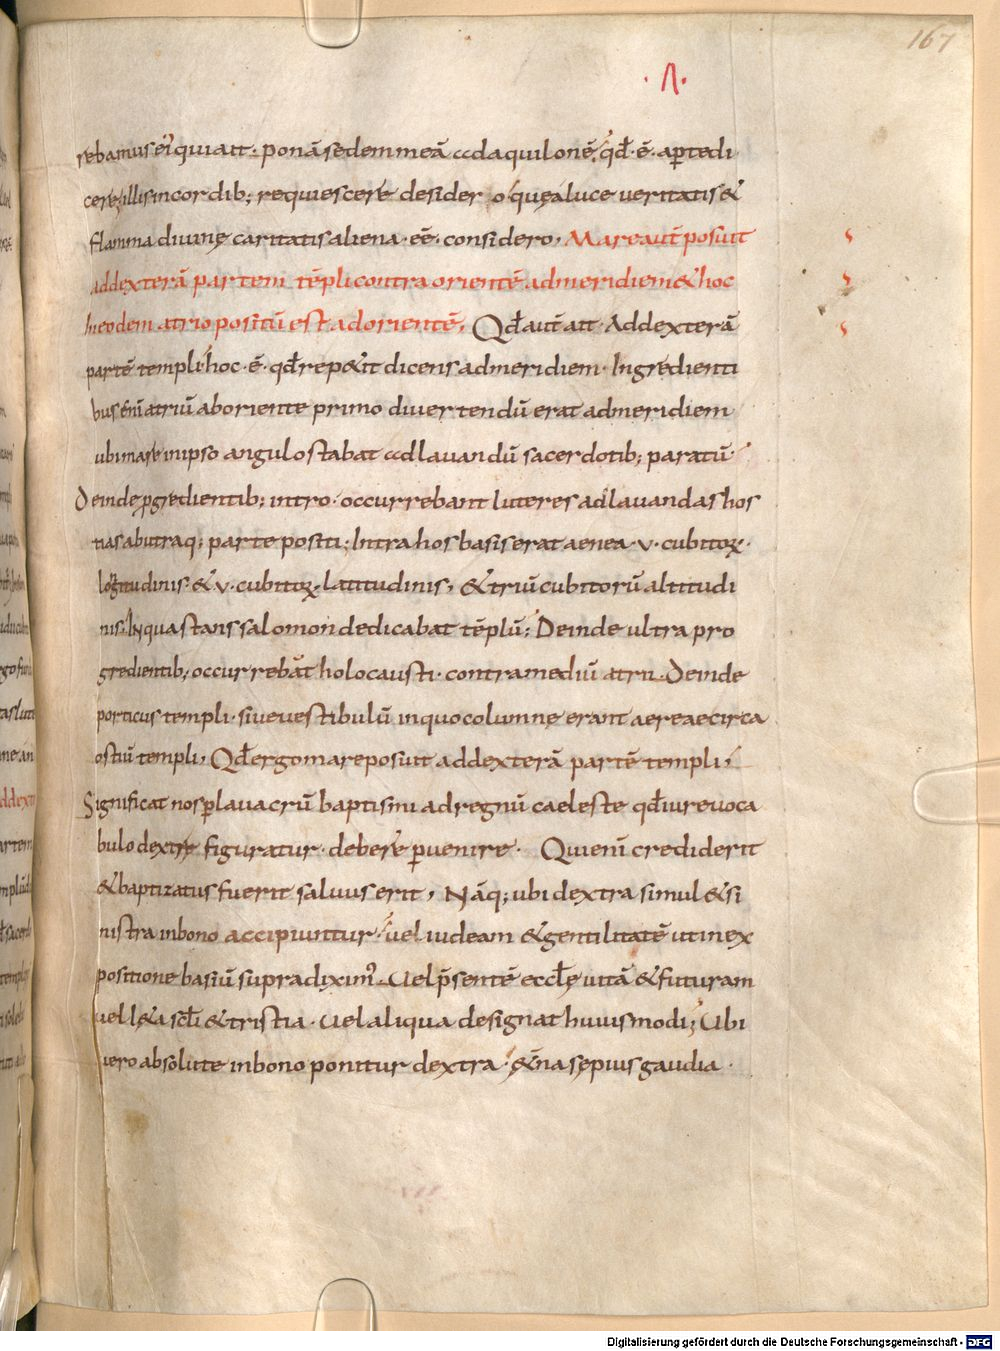 167
·Λ·
rebamus ei᷒ qui ait: ponā sedem meā ad aquilonē. qđ·ē· apte di
cere illis in cordib; requiescere desidero que a luce veritatis &
flamma diuinę caritatis aliena·eē·considero, Mare aut̄ posuit
ad dexterā partem tēpli contra orientē ad meridiem & hoc
in eodem atrio positū est ad orientē, Qđ aut̄ ait· Ad dexterā
partē templi· hoc·ē·qđ rep&it dicens ad meridiem· Ingredienti
bus enī atriū ab oriente primo diuertendū erat ad meridiem
ubi mare in ipso angulo stabat ad lauandū sacerdotib; paratū·
Deinde ꝓgredientib; intro· occurrebant luteres ad lauandas hos
tias ab utraq; parte positi; Intra hos basis erat aenea·v·cubitoꝝ·
lōgitudinis·&·v·cubitoꝝ·latitudinis, & triū cubitorū altitudi
nis, In qua stans salomon dedicabat tēplū; Deinde ultra pro
gredientib; occurrebāt holocausti· contra mediū atrii· Deinde
porticus templi· siue uestibulū in quo columnę erant aereae circa
ostiū templi, Qđ ergo mare posuit ad dexterā partē templi,
Significat nos ꝑ lauacrū baptismi ad regnū caeleste qđ iure uoca
bulo dextrę figuratur· debere ꝑuenire· Qui enī crediderit
& baptizatus fuerit saluus erit, Nāq; ubi dextra simul & si
nistra in bono accipiuntur· uel iudeam & gentilitatē ut in ex
positione basiū supra diximꝰ· Uel p̄sentē eccłę uitā & futuram
uel l&a scłi & tristia· Uel aliqua designat huiusmodi; Ubi
uero absolute in bono ponitur dextra· &̄na sepius gaudia·
Digitalisierung gefördert durch die Deutsche Forschungsgemeinschaft - DFG